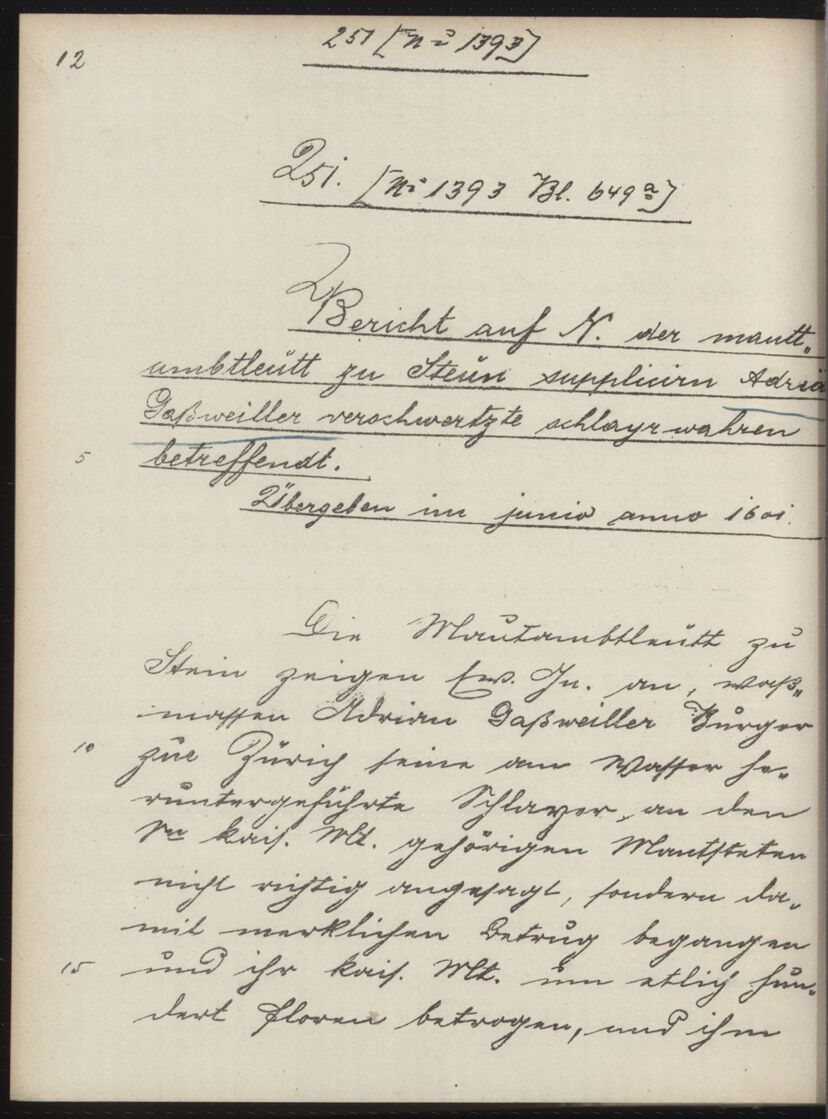 12
251 [No 1393]
251. [No 1393 Bl. 649a]
Bericht auf N. der mautt„
ambtleütt zu Steün supplicirn Adria
Gaßweiller verschwertzte schlayrwahren
5 betreffendt.
Übergeben im junio anno 1601.
Die Mautambtleütt zu
Stein zeigen Ew. Gn. an, waß„
massen Adrian Gaßweiller Burger
10 zue Zürich seine am Wasser he„
runtergeführte Schlayer, an den
Irn kais. Mt. gehörigen Mautsteten
nicht richtig angesagt, sondern da„
mit merklichen Betrug begangen
15 und ihr kais. Mt. um etlich hun„
dert floren betrogen, und ihm